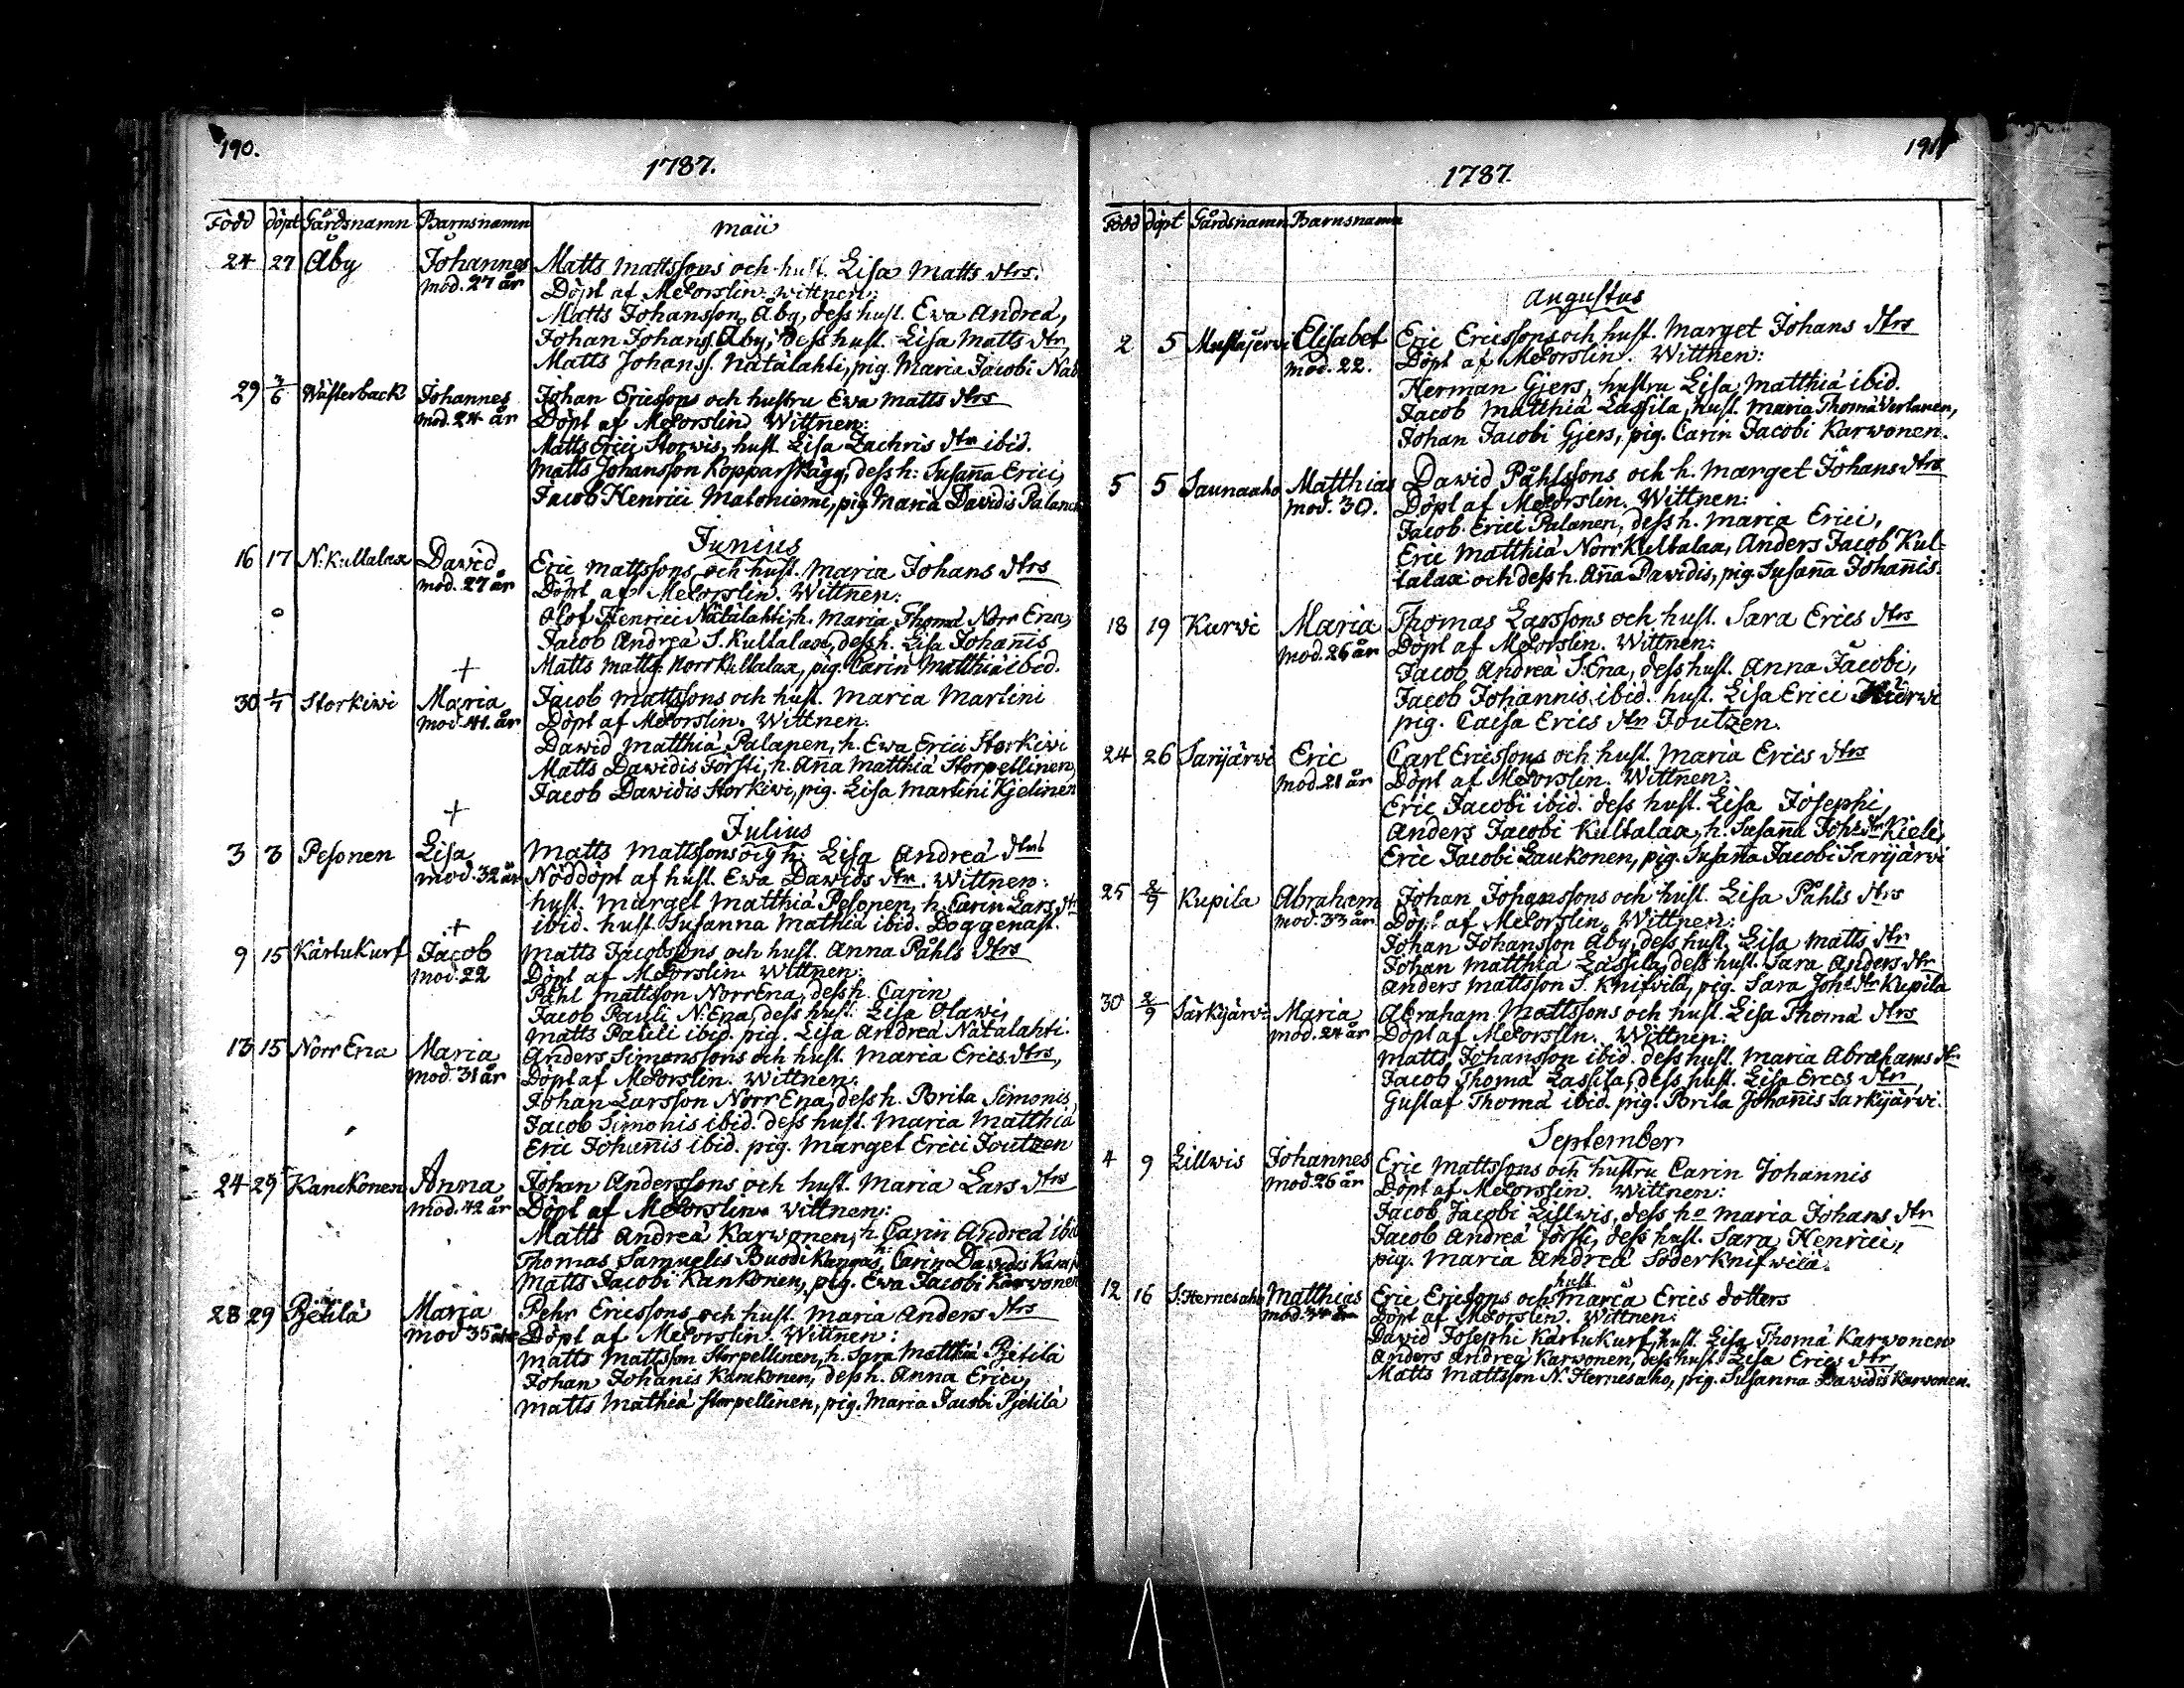 190.
1787.
Född döpt Gårdsnamn Barnsnamn
maii
24 27 Åby Johannes Matts Mattssons och hust. Lisa Matts dtrs.
mod. 27 år Döpt af MeLorslin. wittnen:
Matts Johansson Åby, dess hust. Ewa Andreä,
Johan Johans. Åby, dess hust. Lisa Matts dtr
Matts Johanss. Nätälahti, pig. Maria Jacobi
29 3/6 Wästerback Johannes Johan Ericssons och hustru Ewa Matts dtrs
mod. 24 år Döpt af MeLorslin Wittnen:
Matts Erici Storwis, hust Lisa Zachris dtr ibid.
Matts Johansson Kopparskägg, dess h: Susanna Erici,
Jacob Henrici Matoniemi, pig Maria Davidis
Junius
16 17 N: Kullalax David Eric Mattssons och hust. Maria Johans dtrs
mod. 27 år Döpt af MeLorslin. Wittnen:
Olof Henrici Nätälahti, h. Maria Thomä Norr Ena,
Jacob Andreä S. Kullalax, dess h. Lisa Johannis
Matts Matts. Norr Kullalax, pig. Carin Matthiä ibid.
+
30 1/7 Storkiwi Maria Jacob Mattssons och hust. Maria Martini
mod. 41. år Döpt af MeLorslin. Wittnen.
Dawid Matthiä Palanen, h. Ewa Erici Storkiwi
Matts Dawidis Försti, h. Anna Matthiä Storpellinen,
Jacob Dawidis Storkiwi, pig. Lisa Martini Kjelinen
+
Julius
3 3 Pesonen Lisa Matts Mattssons og h: Lisa Andreä dtrs
mod. 32 år Nöddöpt af hust. Ewa Dawids dtr. Wittnen:
hust. Marget Matthiä Pesonen, h. Carin Lars dtr
ibid. hust. Susanna Mathiä ibid. Döggenast.
+
9 15 Kärtukurf Jacob Matts Jacobssons och hust. Anna Påhls dtrs
mod. 22 Döpt af MLorslin Wittnen:
Påhl Mattsson Norr Ena, dess h. Carin
Jacob Pauli N: Ena, dess hust: Lisa Olawi,
Matts Pauli ibid. pig. Lisa Andreä Nätälahti.
13 15 Norr Ena Maria Anders Simonssons och hust. Maria Erics dtrs,
mod. 31 år Döpt af MeLorslin. Wittnen:
Johan Larsson Norr Ena, dess h. Brita Simonis
Jacob Simonis ibid. dess hust. Maria Matthiä
Eric Johannis ibid. pig. Marget Erici Joutzen
24 29 Kanckonen Anna Johan Anderssons och hust. Maria Lars dtrs
mod. 42 år Döpt af MeLorslin. Wittnen:
Matts Andreä Karwonen, h. Carin Andreä
Thomas Samuelis Buodikangas, h: Carin Dawidis
Matts Jacobi Kankonen, pig. Ewa Jacobi Karwonen
28 29 Pjetilä Maria Pehr Ericssons och hust. Maria Anders dtrs
mod 35 Döpt af MeLorslin. Wittnen:
Matts Mattsson Storpellinen, h. Sara Matthiä Pjetilä
Johan Johanis Kanckonen, dess h. Anna Erici,
Matts Mathiä Storpellinen, pig. Maria Jacobi Pjetilä
191
1787.
Född döpt Gårdsnamn Barnsnamn
Augustus
2 5 Mustajerwi Elisabet Eric Ericssons och hust. Marget Johans dtrs
mod. 22. Döpt af MeLorslin. Wittnen:
Herman Gjers, hustru Lisa Matthiä ibid.
Jacob Matthiä Lassila, hust. Maria Thomä Verlanen,
Johan Jacobi Gjers, pig. Carin Jacobi Karwonen.
5 5 Saunaaho Matthias Dawid Påhlssons och h. Marget Johans dtrs
mod. 30. Döpt af MeLorslin. Wittnen:
Jacob Erici Palanen, dess h. Maria Erici,
Eric Matthiä Norr Kullalax, Anders Jacob Kul-
lalax och dess h. Anna Dawidis, pig. Susanna Johannis.
18 19 Kurwi Maria Thomas Larssons och hust. Sara Erics dtrs
mod. 26 år Döpt af MeLorslin. Wittnen:
Jacob Andreä S: Ena, dess hust. Anna Jacobi,
Jacob Johannis ibid. hust. Lisa Erici
pig. Caisa Erics dtr Joutzen.
24 26 Sarijärwi Eric Carl Ericssons och hust. Maria Erics dtrs
mod. 21 år Döpt af MeLorslin. Wittnen:
Eric Jacobi ibid. dess hust. Lisa Josephi,
Anders Jacobi Kullalax, h. Susanna Joh: dtr Kieli,
Eric Jacobi Laukonen, pig. Susanna Jacobi Sarijärwi
25 2/9 Kupila Abraham Johan Johanssons och hust. Lisa Påhls dtrs
mod. 33 år Döpt af MeLorslin. Wittnen:
Johan Johansson Åby, dess hust. Lisa Matts dtr
Johan Matthiä Lassila, dess hust. Sara Anders dtr
Anders Mattsson S. Knifvilä, pig. Sara Joh: dtr Kupila
30 2/9 Särkijärwi Maria Abraham Mattssons och hust. Lisa Thomä dtrs
mod. 24 år Döpt af MeLorslin. Wittnen:
Matts Johansson ibid. dess hust. Maria Abrahams dtr
Jacob Thomä Lassila, dess hust. Lisa Erics dtr,
Gustaf Thomä ibid. pig. Brita Johannis Särkijärwi.
September
4 9 Lillwis Johannes Eric Mattssons och hustru Carin Johannis
mod. 26 år Döpt af MeLorslin. Wittnen:
Jacob Jacobi Lillwis, dess ho Maria Johans dtr
Jacob Andreä Försti, dess hust. Sara Henrici,
pig. Maria Andreä Söderknifwilä.
12 16 S: Hernesaho Matthias Eric Ericssons och hust Maria Erics dotters
mod. Döpt af MeLorslin. Wittnen:
David Josephi Kärtukurf, hust. Lisa Thomä Karwonen
Anders Andreä Karwonen, dess hust. Lisa Erics dtr
Matts Mattsson N: Hernesaho, pig. Susanna Dawidis Karwonen.